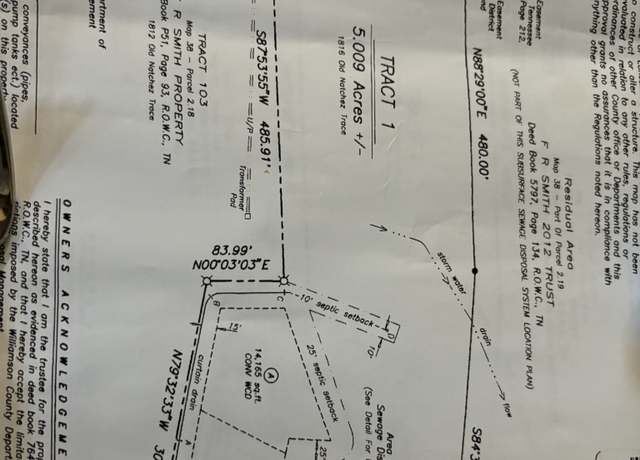 construct or alter a structure. This map has not been
evaluated in relation to any other rules, regulations or
ordinances of other County office or Departments and this
approval grants no assurances that it is in compliance with
anything other than the Regulations noted hereon.
Residual Area
Map 38 - Part Of Parcel 2.19
F R SMITH 2012 TRUST
Deed Book 5797, Page 134, R.O.W.C., TN
(NOT PART OF THIS SUBSURFACE SEWAGE DISPOSAL SYSTEM LOCATION PLAN)
Easement
Tennessee
Page 212,
Easement
District
and
N88°29'00"E 480.00'
S84°3
storm water
drain
flow
TRACT 1
5.009 Acres +/-
1816 Old Natchez Trace
S87°53'55"W 485.91'
U/P
Transformer
Pad
TRACT 103
Map 38 - Parcel 2.18
F R SMITH PROPERTY
Book P51, Page 93, R.O.W.C., TN
1812 Old Natchez Trace
83.99'
N00°03'03"E
10' septic setback
10'
D
B
C
15'
25' septic setback
A
14,165 sq.ft.
CONV WCD
curtain drain
A
25'
N79°32'33"W 30
Area
Sewage Dis
(See Detail For
artment of
ement
conveyances (pipes,
pump tanks ect.) located
(s) on this property
OWNERS ACKNOWLEDGEME
I hereby state that I am the trustee for the pro
described hereon as evidenced in deed book 764
R.O.W.C., TN, and that I hereby accept the limita
imposed by the Williamson County Depart